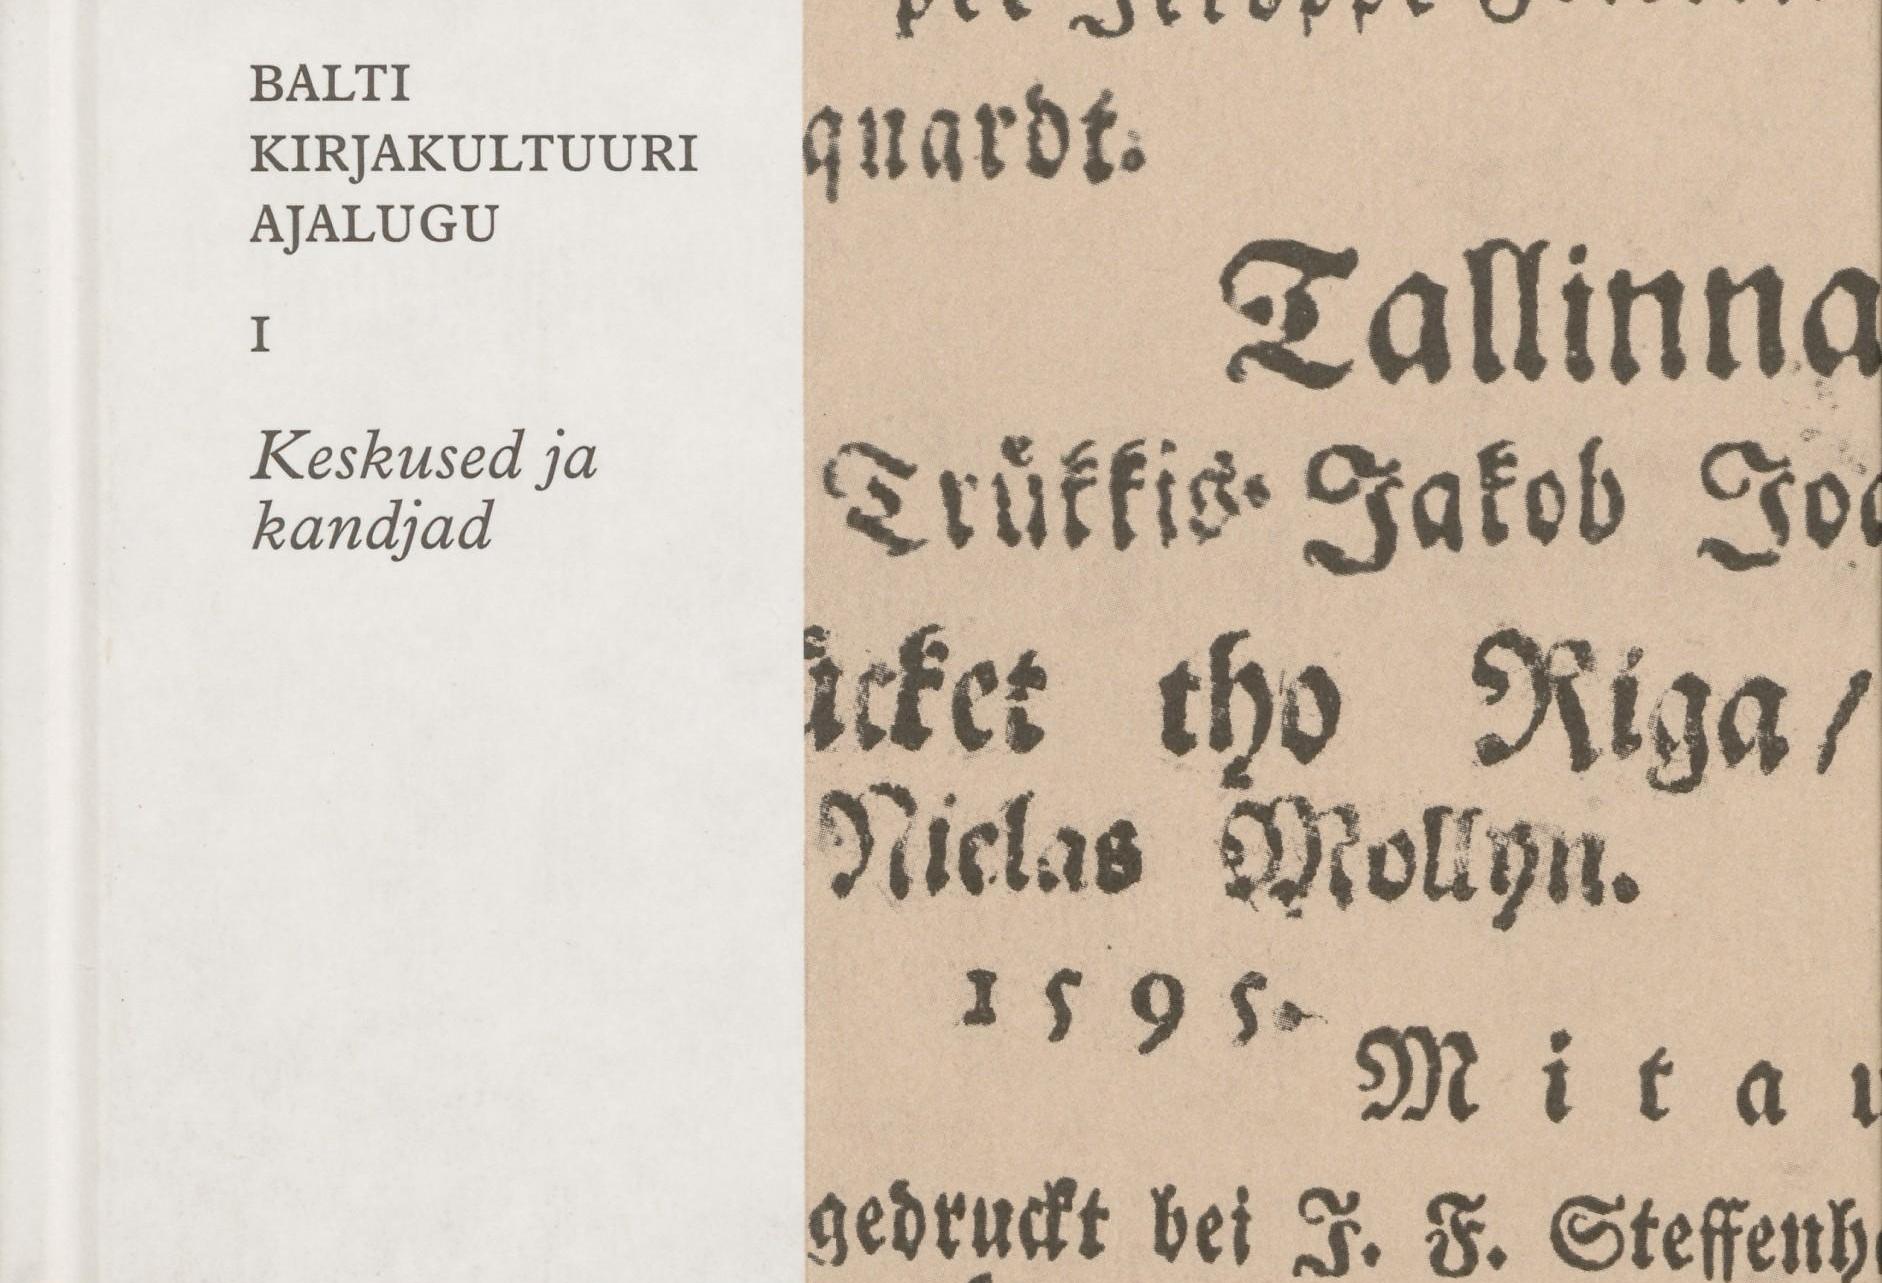 BALTI
KIRJAKULTUURI
AJALUGU
I
Keskused ja
kandjad
quardt.
Tallinna
Trükkis Jakob Joa
ücket tho Riga/
Niclas Mollyn.
1595.
Mitau
gedruckt bei J. F. Steffenh